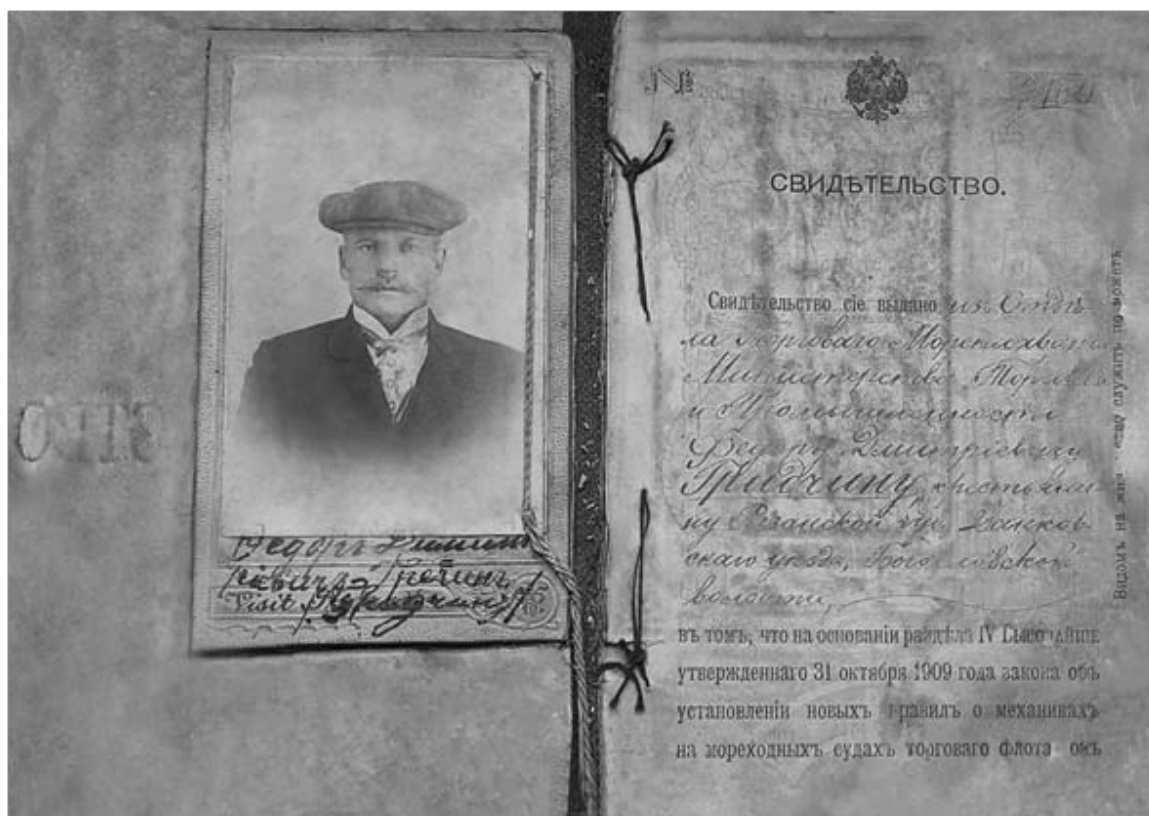 СТВО
Ѳедоръ Дмит
ріевичъ
Visit
№
СВИДѢТЕЛЬСТВО.
Свидѣтельство сіе выдано изъ Отдѣ
ла Торговаго Мореплаванія
Министерства Торговли
и Промышленности
Федору Дмитріевичу
Гридчину, крестьяни
ну Рязанской губ. Данков
скаго уѣзда,
волости,
въ томъ, что на основаніи раздѣла IV Высочайше
утвержденнаго 31 октября 1909 года закона объ
установленіи новыхъ правилъ о механикахъ
на мореходныхъ судахъ торговаго флота онъ
Видомъ на жительство служить не можетъ